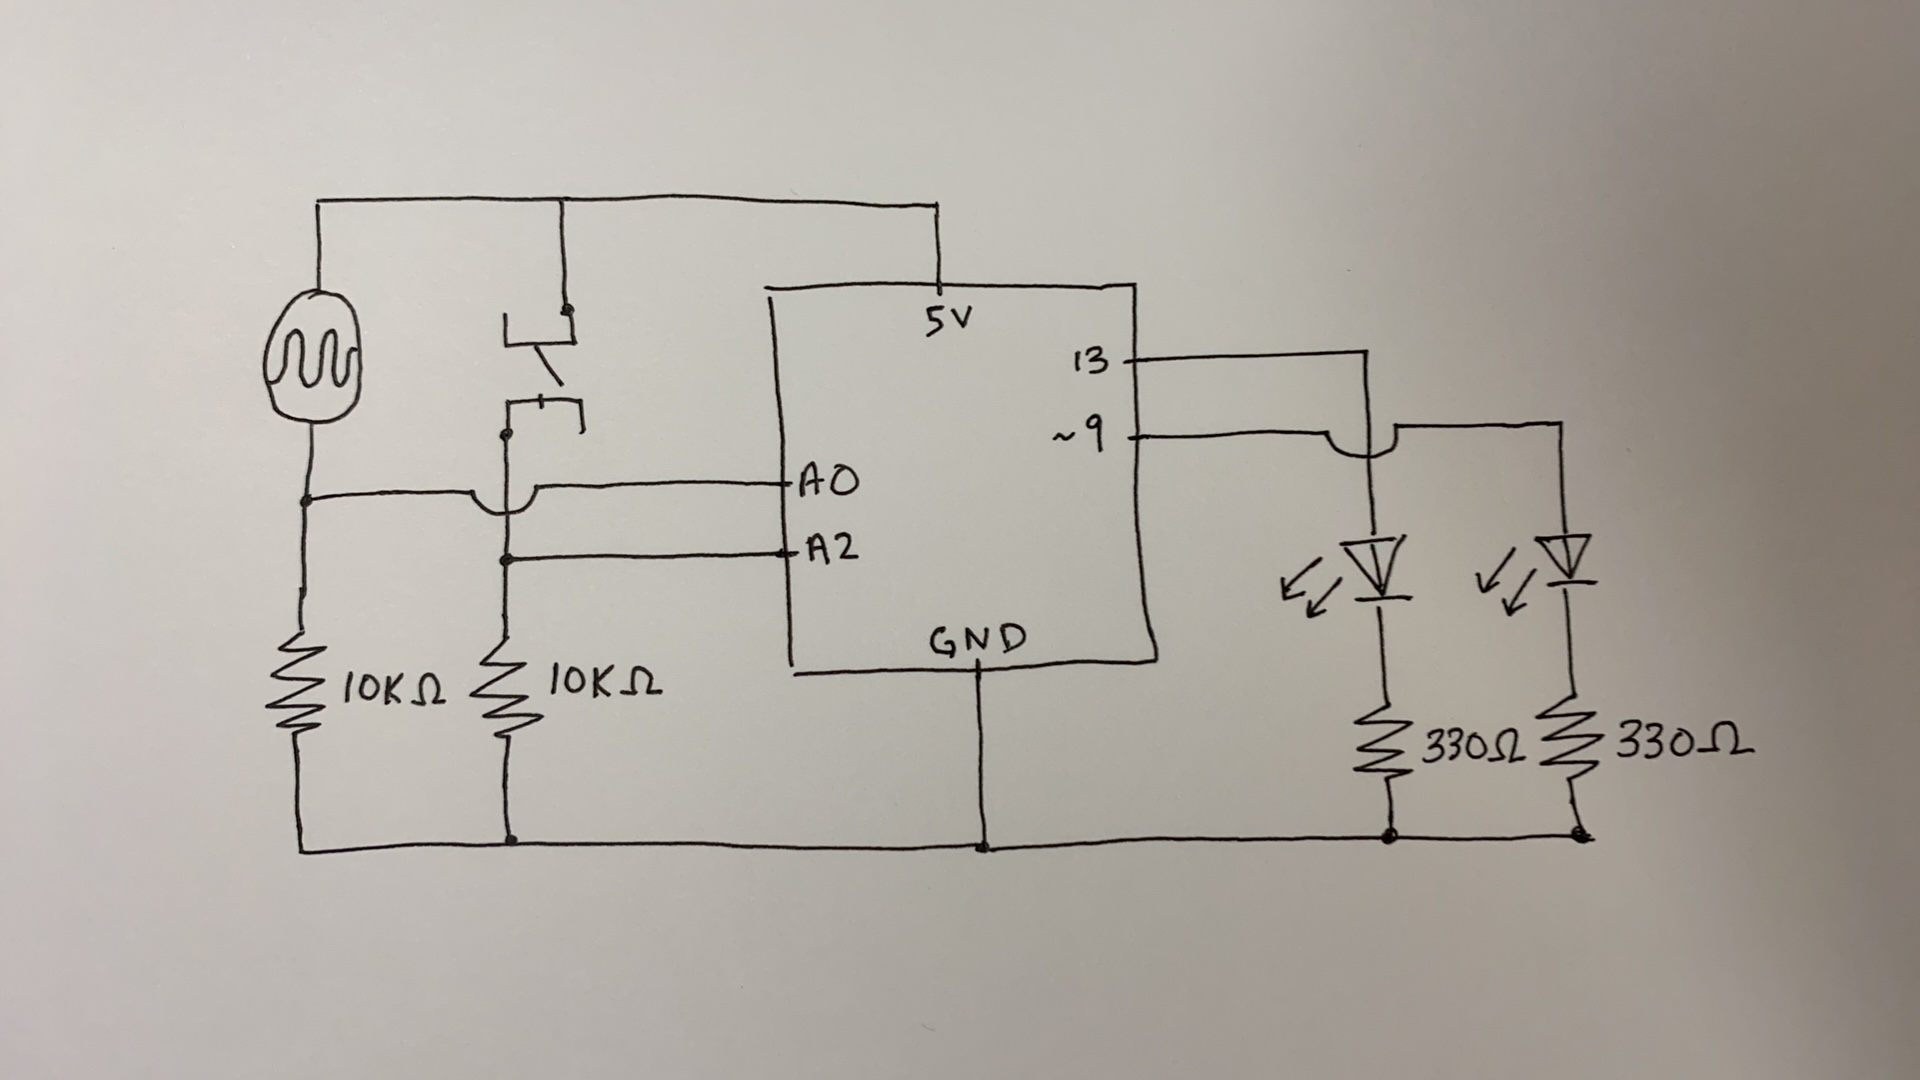 5V
13
~9
A0
A2
GND
10KΩ
10KΩ
330Ω
330Ω